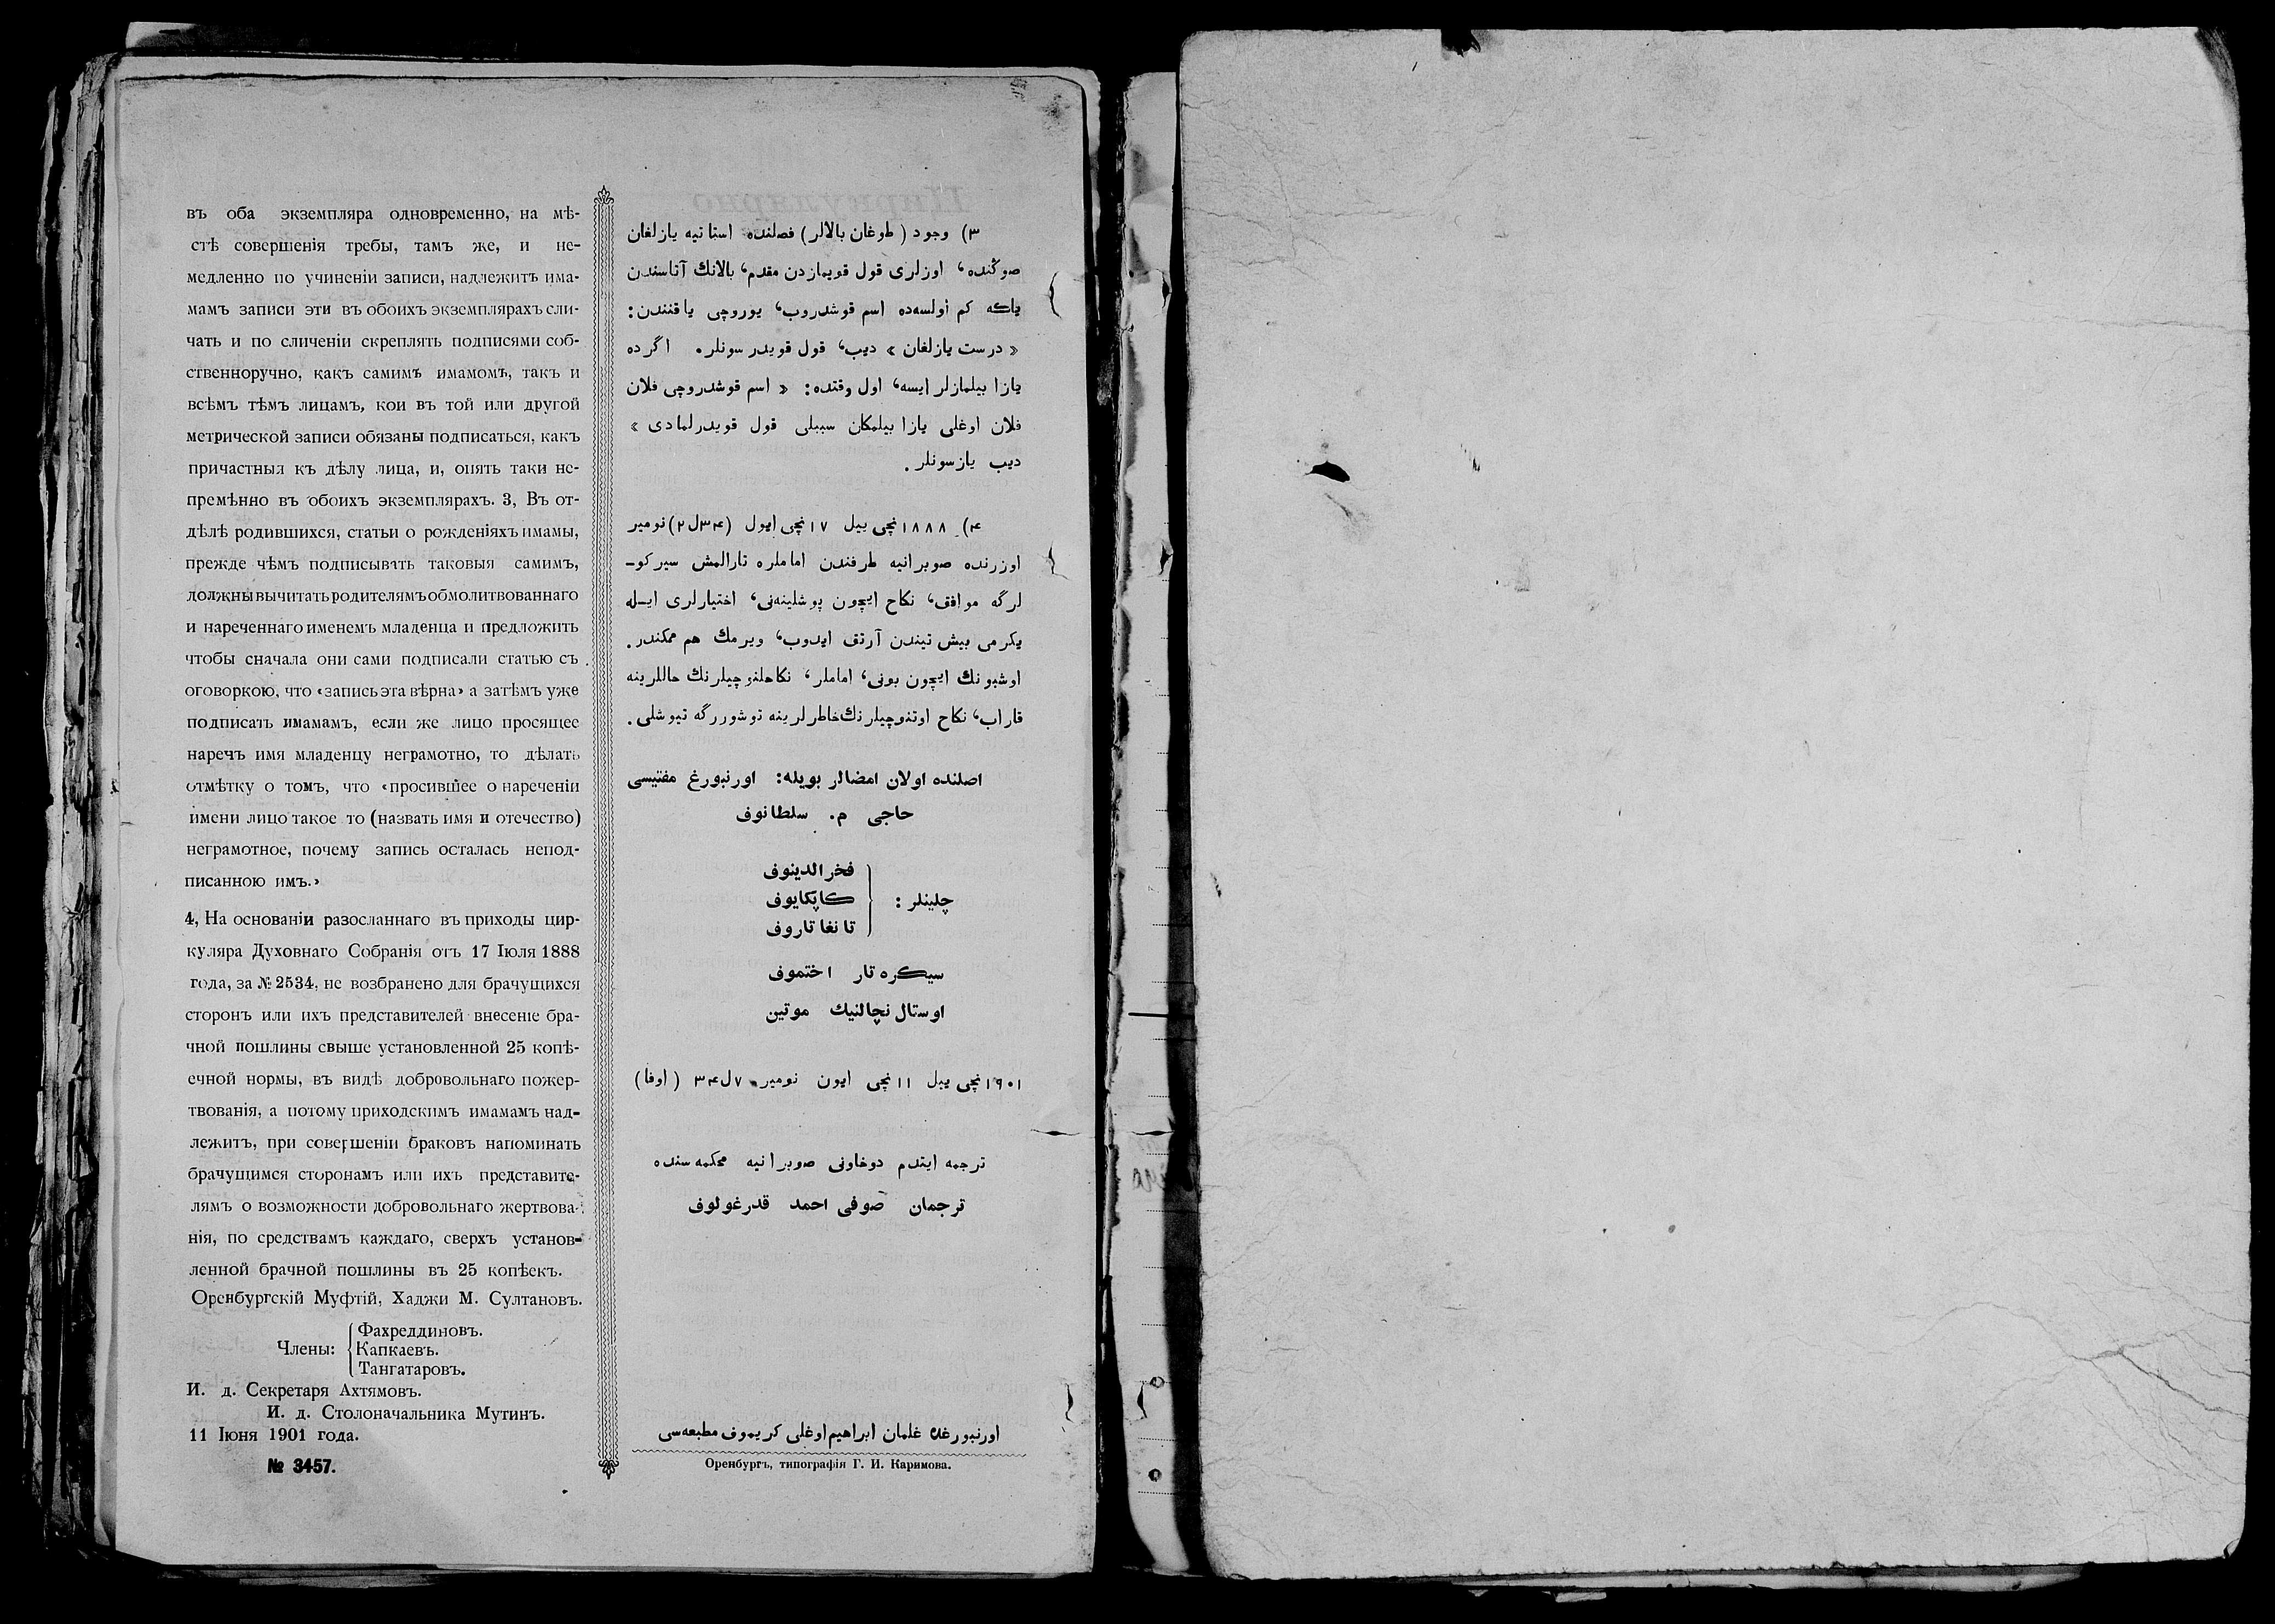 въ оба экземпляра одновременно, на мѣ-
стѣ совершенія требы, тамъ же, и не-
медленно по учиненіи записи, надлежитъ има-
мамъ записи эти въ обоихъ экземплярахъ сли-
чать и по сличеніи скреплять подписями соб-
ственноручно, какъ самимъ имамомъ, такъ и
всѣмъ тѣмъ лицамъ, кои въ той или другой
метрической записи обязаны подписаться, какъ
причастныя къ дѣлу лица, и, опять таки не-
премѣнно въ обоихъ экземплярахъ. 3, Въ от-
дѣлѣ родившихся, статьи о рожденіяхъ имамы,
прежде чѣмъ подписывать таковыя самимъ,
должны вычитать родителямъ обмолитвованнаго
и нареченнаго именемъ младенца и предложить
чтобы сначала они сами подписали статью съ
оговоркою, что «запись эта вѣрна» а затѣмъ уже
подписать имамамъ, если же лицо просящее
наречъ имя младенцу неграмотно, то дѣлать
отмѣтку о томъ, что «просившее о нареченіи
имени лицо такое то (назвать имя и отечество)
неграмотное, почему запись осталась непод-
писанною имъ.»
4, На основаніи разосланнаго въ приходы цир-
куляра Духовнаго Собранія отъ 17 Іюля 1888
года, за № 2534, не возбранено для брачущихся
сторонъ или ихъ представителей внесеніе бра-
чной пошлины свыше установленной 25 копѣ-
ечной нормы, въ видѣ добровольнаго пожер-
твованія, а потому приходскимъ имамамъ над-
лежитъ, при совершеніи браковъ напоминать
брачущимся сторонамъ или ихъ представите-
лямъ о возможности добровольнаго жертвова-
нія, по средствамъ каждаго, сверхъ установ-
ленной брачной пошлины въ 25 копѣекъ.
Оренбургскій Муфтій, Хаджи М. Султановъ.
Члены: Фахреддиновъ.
Капкаевъ.
Тангатаровъ.
И. д. Секретаря Ахтямовъ.
И. д. Столоначальника Мутинъ.
11 Іюня 1901 года.
№ 3457.
٣) وجود (طوغان بالالر) فصلنده استاتیه یازلغان
صوڭنده، اوزلری قول قویمازدن مقدم، بالانڭ آتاسندن
یاكه كم اولسه‌ده اسم قوشدروب، یوروچی یاقنندن:
« درست یازلغان » دیب، قول قویدرسونلر. اگرده
یازا بیلمازلر ایسه، اول وقتده: « اسم قوشدروچی فلان
فلان اوغلی یازا بیلمكان سببلی قول قویدرلمادی »
دیب یازسونلر.
۴) ۱۸۸۸نچی ییل ۱۷نچی ایول (۲۵۳۴) نومیر
اوزرنده صوبرانیه طرفندن اماملره تارالمش سیركو-
لرگه موافق، نكاح ایچون پوشلینه‌نی، اختیارلری ایله
یكرمی بیش تیندن آرتق ایدوب، ویرمك هم ممكندر.
اوشبونڭ ایچون بونی، اماملر، نكاحلنوچیلرنڭ حاللرینه
قاراب، نكاح اوتنوچیلرنڭ خاطرلرینه توشوررگه تیوشلی.
اصلنده اولان امضالر بویله: اورنبورغ مفتیسی
حاجی م. سلطانوف
چلینلر: فخرالدینوف
كاپكایوف
تانغاتاروف
سیكره‌تار اختموف
اوستال نچالنیك موتین
۱۹۰۱نچی ییل ۱۱نچی ایون نومیر ۳۴۵۷ (اوفا)
ترجمه ایتدم دوخاونی صوبرانیه محكمه‌سنده
ترجمان صوفی احمد قدرغولوف
اورنبورغده غلمان ابراهیم اوغلی كریموف مطبعه‌سی
Оренбургъ, типографія Г. И. Каримова.